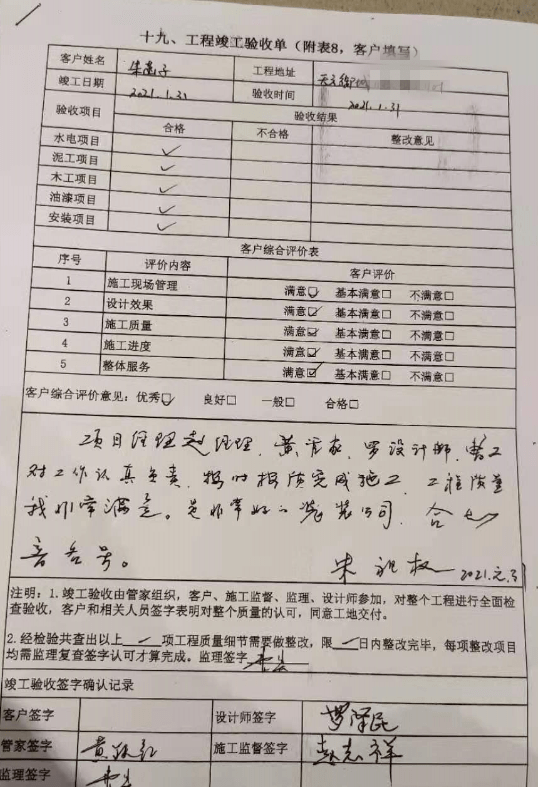 十九、工程竣工验收单（附表8，客户填写）
客户姓名 工程地址
竣工日期 2021.1.31 验收时间 2021.1.31
验收项目 验收结果
合格 不合格 整改意见
水电项目 ✓
泥工项目 ✓
木工项目 ✓
油漆项目 ✓
安装项目 ✓
客户综合评价表
序号 评价内容 客户评价
1 施工现场管理 满意☑ 基本满意□ 不满意□
2 设计效果 满意☑ 基本满意□ 不满意□
3 施工质量 满意☑ 基本满意□ 不满意□
4 施工进度 满意☑ 基本满意□ 不满意□
5 整体服务 满意☑ 基本满意□ 不满意□
客户综合评价意见：优秀☑ 良好□ 一般□ 合格□
项目经理赵经理、黄管家、罗设计师
对工作认真负责，按时按质完成施工，工程质量
我非常满意。是非常好的装公司，
2021.元.31
注明：1.竣工验收由管家组织，客户、施工监督、监理、设计师参加，对整个工程进行全面检
查验收，客户和相关人员签字表明对整个质量的认可，同意工地交付。
2.经检验共查出以上 项工程质量细节需要做整改，限 日内整改完毕，每项整改项目
均需监理复查签字认可才算完成。监理签字
竣工验收签字确认记录
客户签字 设计师签字 罗泽民
管家签字 施工监督签字 赵志祥
监理签字